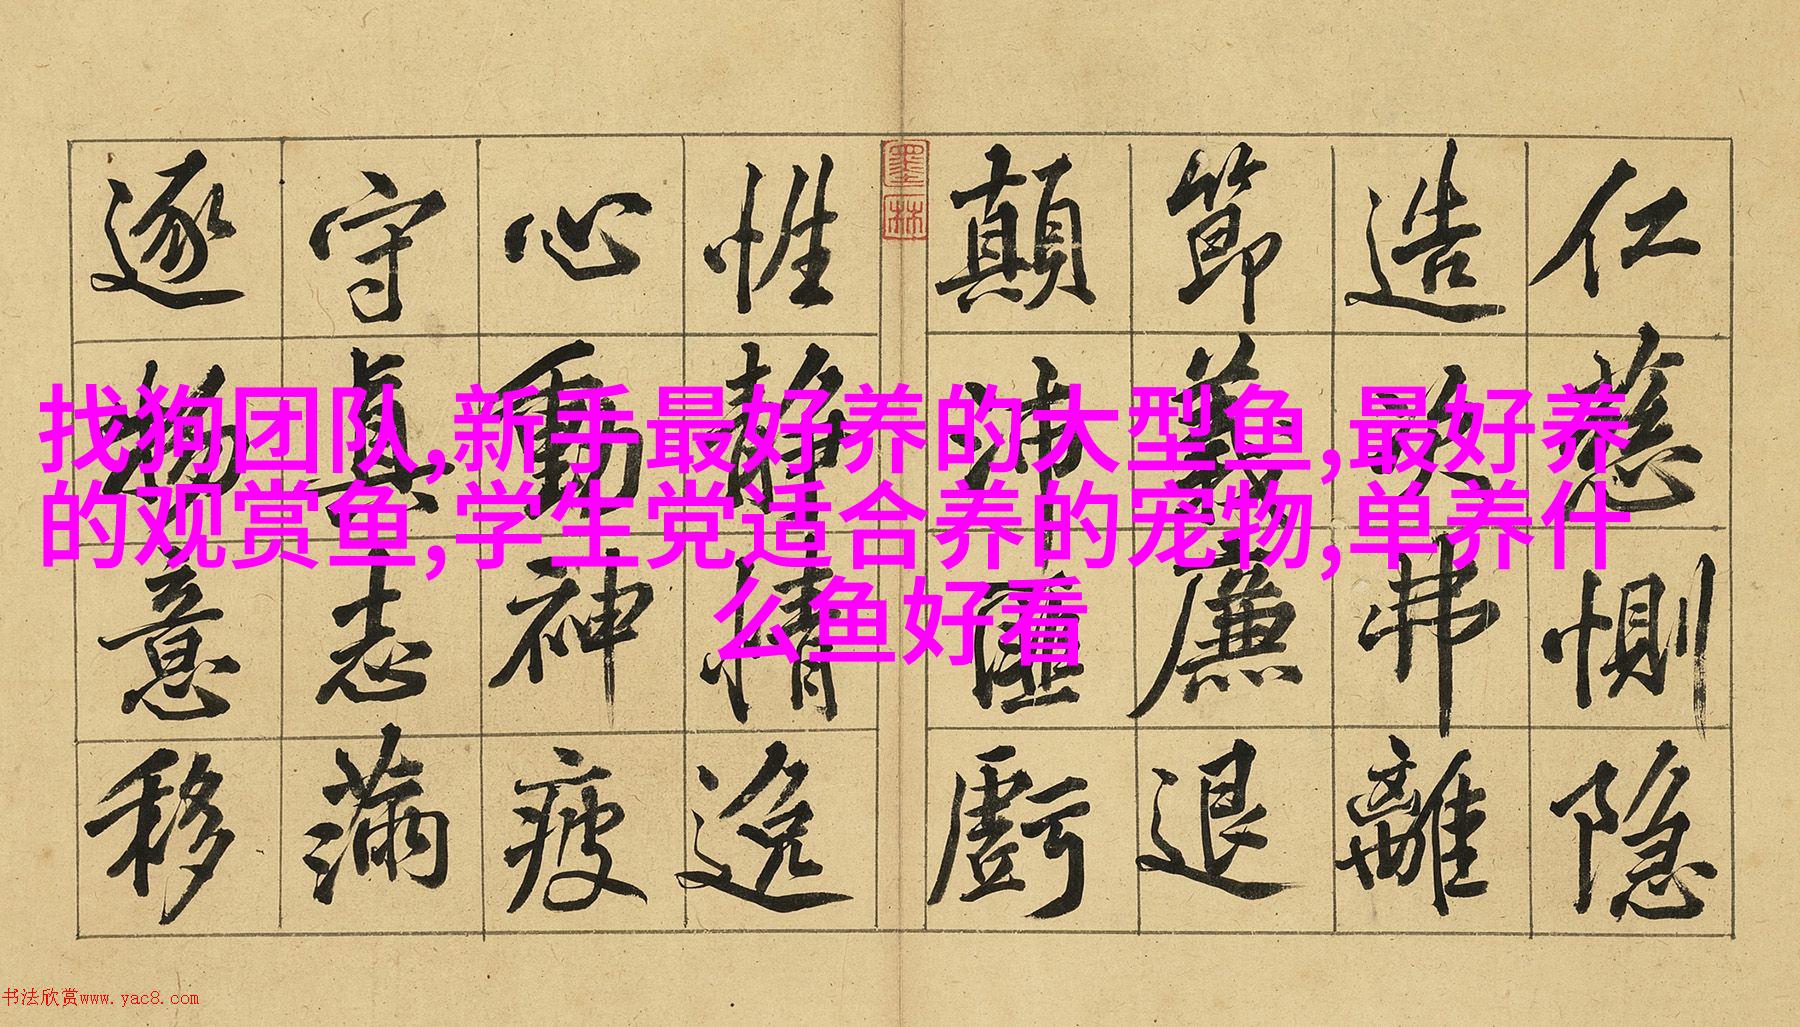 仁慈惻隐
造次弗離
節義廉退
顛沛匪虧
性靜情逸
心動神疲
守真志滿
逐物意移
墨林
找狗团队,新手最好养的大型鱼,最好养
的观赏鱼,学生党适合养的宠物,单养什
么鱼好看
书法欣赏www.yac8.com